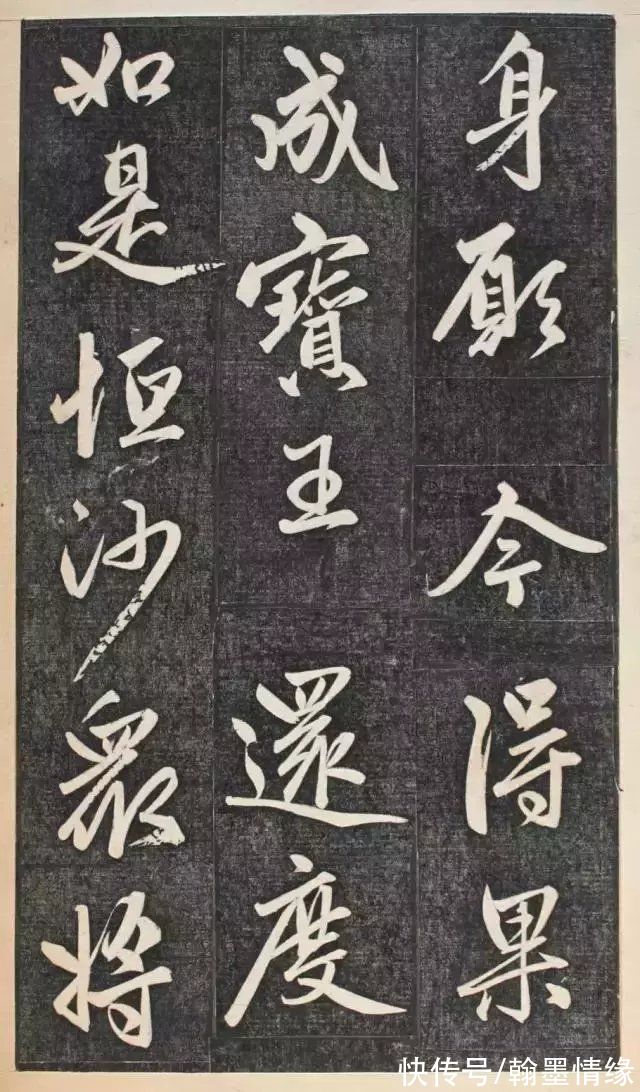 身願今得果
成寶王還度
如是恒沙眾將
快传号/翰墨情缘